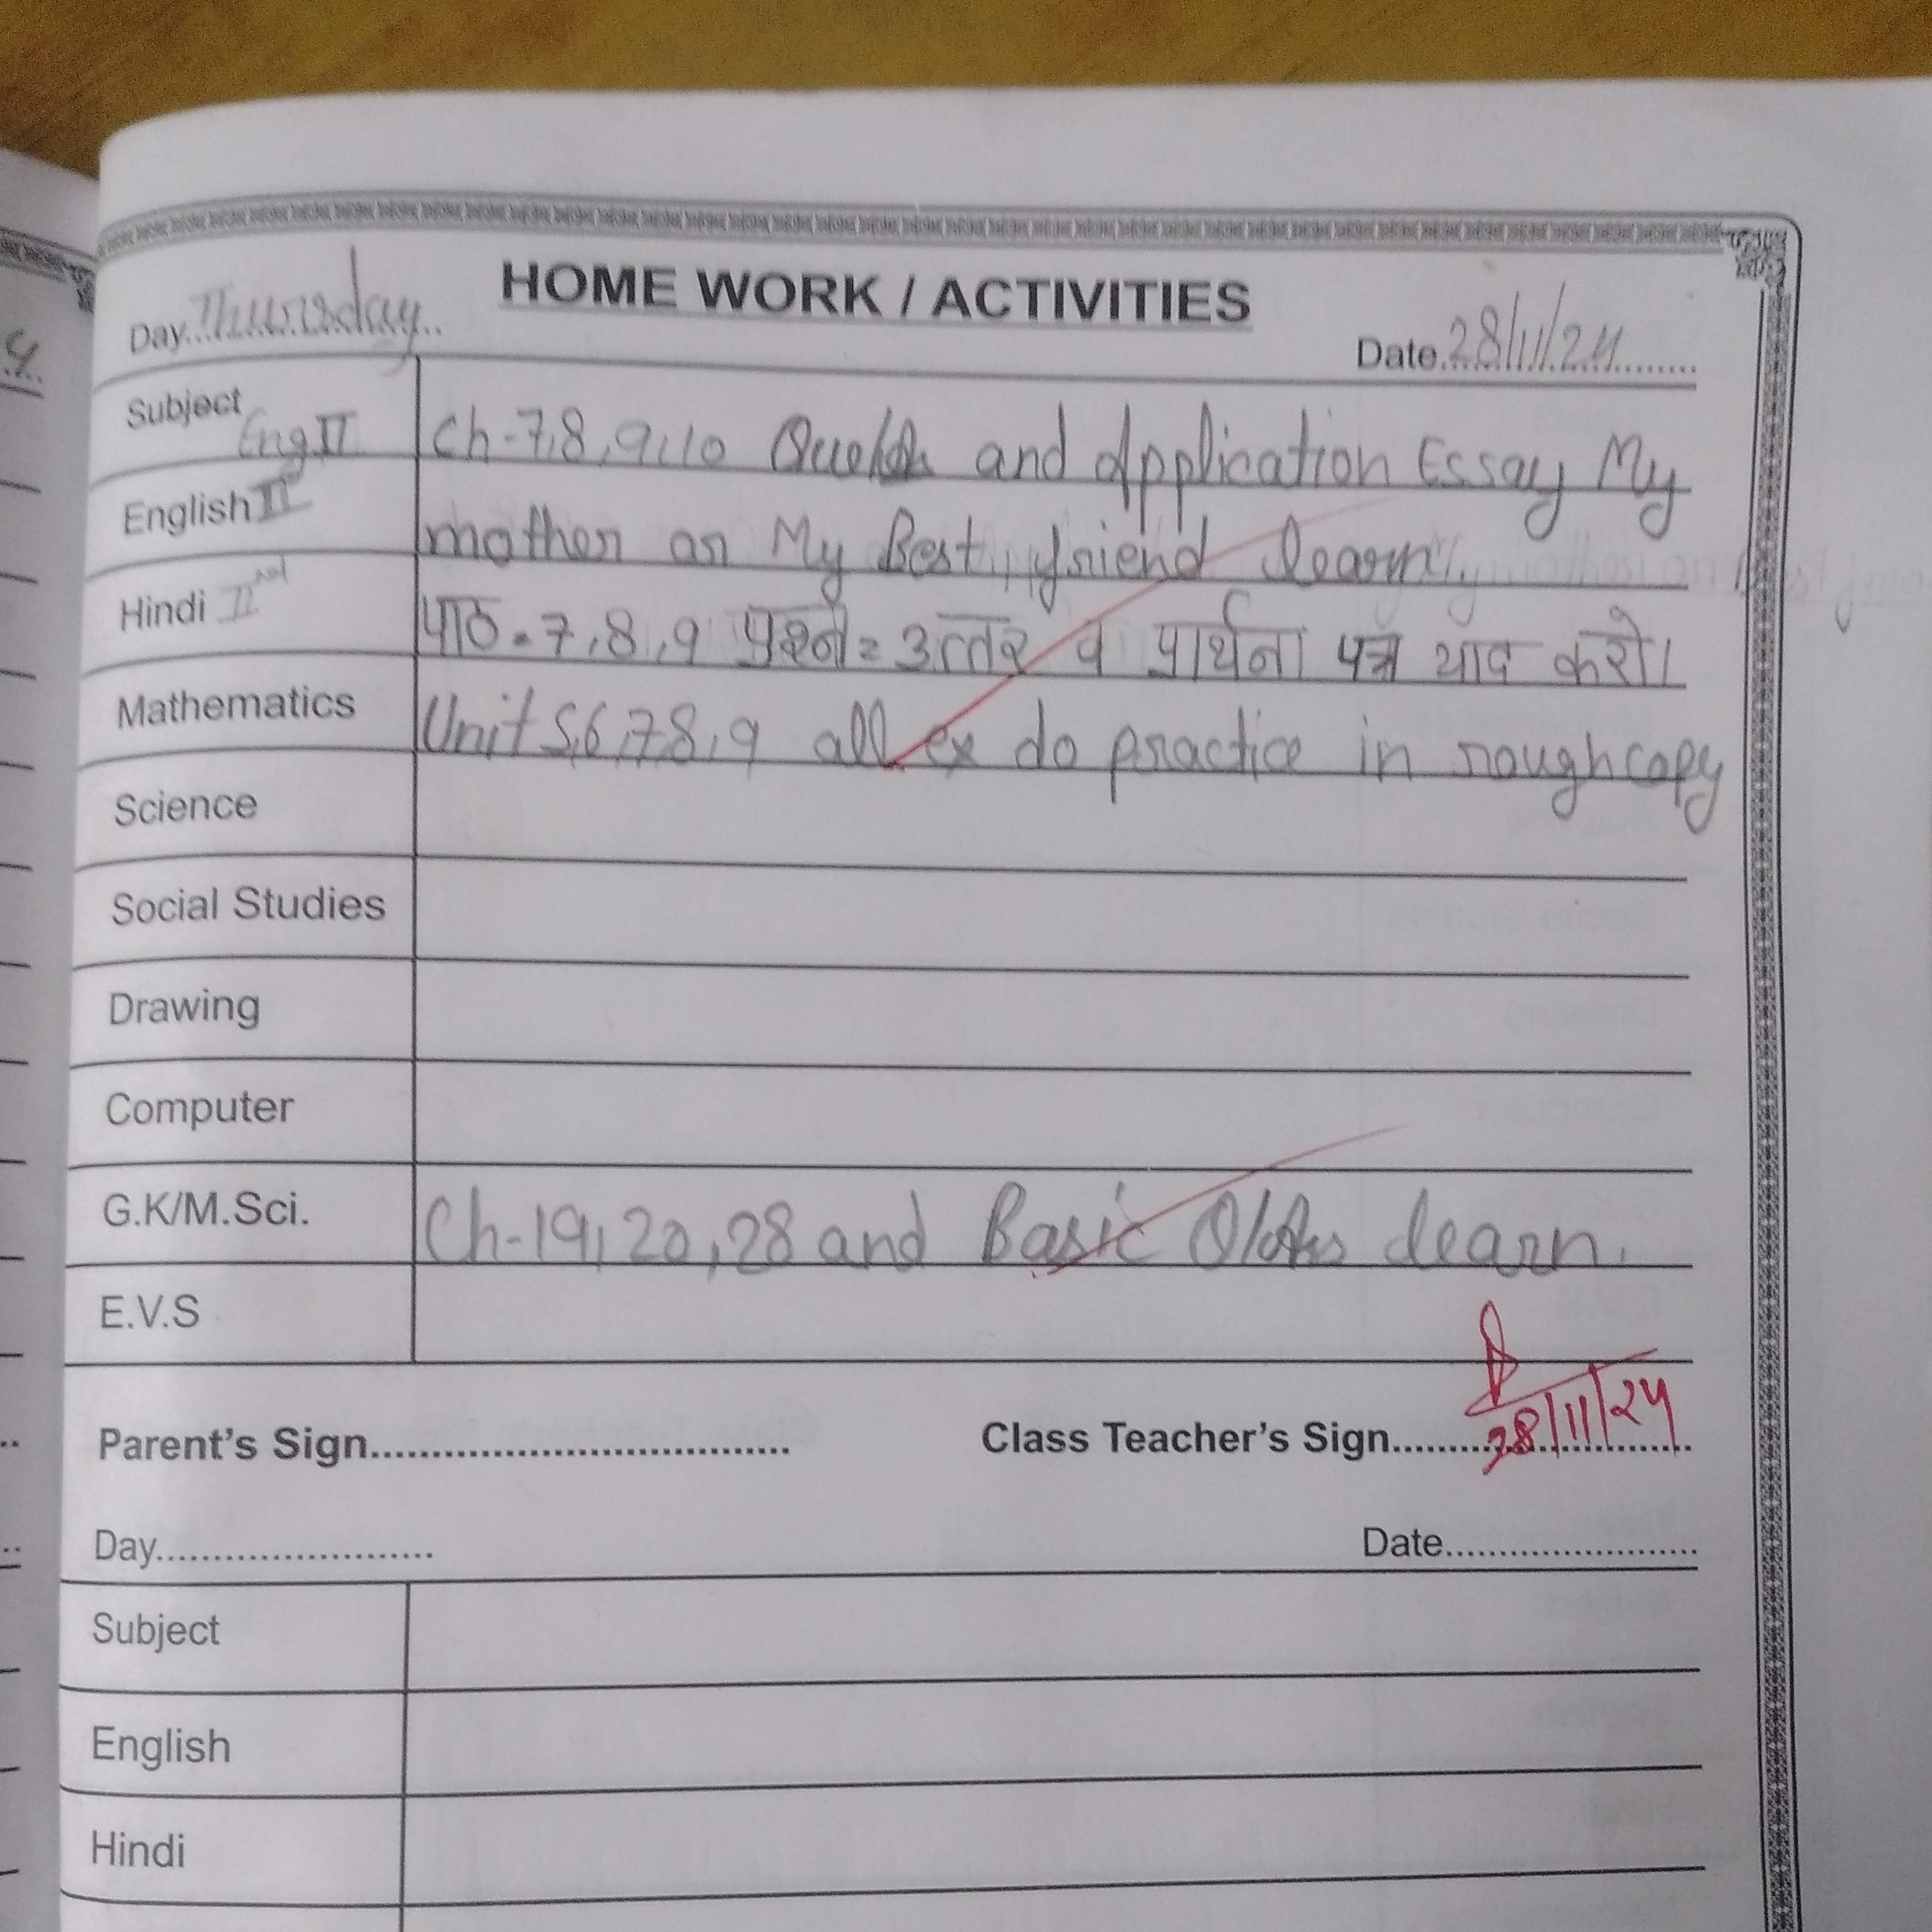 HOME WORK / ACTIVITIES
Day Thursday Date 28/11/24
Subject Eng II Ch-7,8,9,10 and Application Essay My
English II mother or My Best friend learn
Hindi II nd पाठ-7,8,9 प्रश्न = उत्तर व प्रार्थना पत्र याद करो।
Mathematics Unit 5,6,7,8,9 all ex do practice in rough copy
Science
Social Studies
Drawing
Computer
G.K/M.Sci. Ch-19,20,28 and Basic learn.
E.V.S
Parent's Sign Class Teacher's Sign 28/11/24
Day Date
Subject
English
Hindi